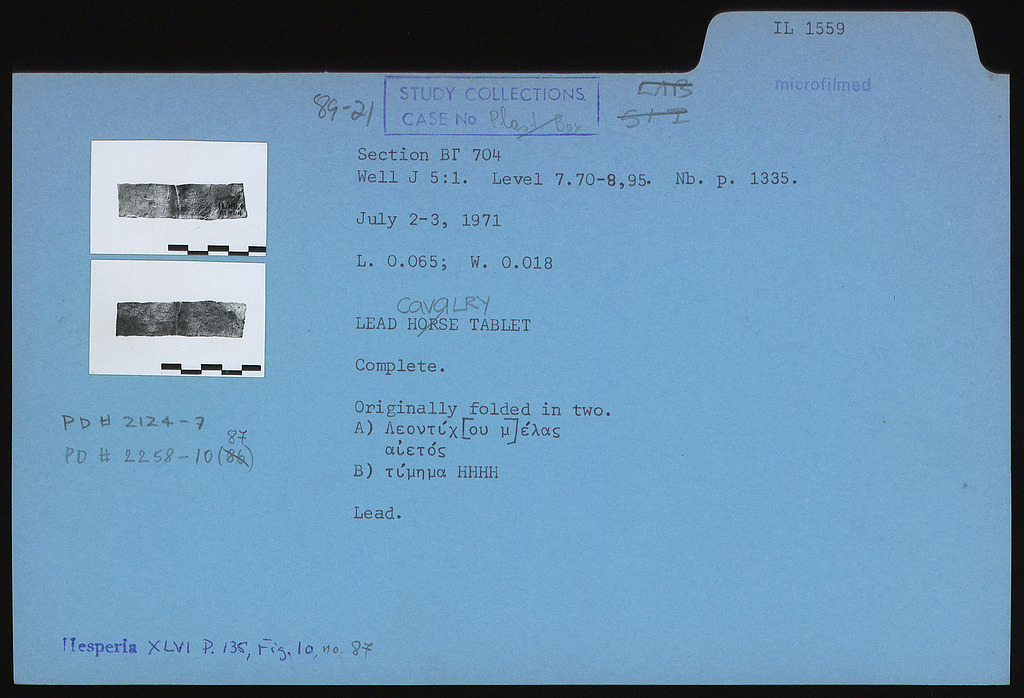 IL 1559
microfilmed
89-21
STUDY COLLECTIONS
CASE No Plast Box
Section ΒΓ 704
Well J 5:1. Level 7.70-8,95. Nb. p. 1335.
July 2-3, 1971
L. 0.065; W. 0.018
CAVALRY
LEAD HORSE TABLET
Complete.
Originally folded in two.
A) Λεοντίχ[ου μ]έλας
αἰετός
B) τίμημα ΗΗΗΗ
Lead.
PD # 2124-7
87
PD # 2258-10 (86)
Hesperia XLVI P. 135, Fig. 10, no. 87